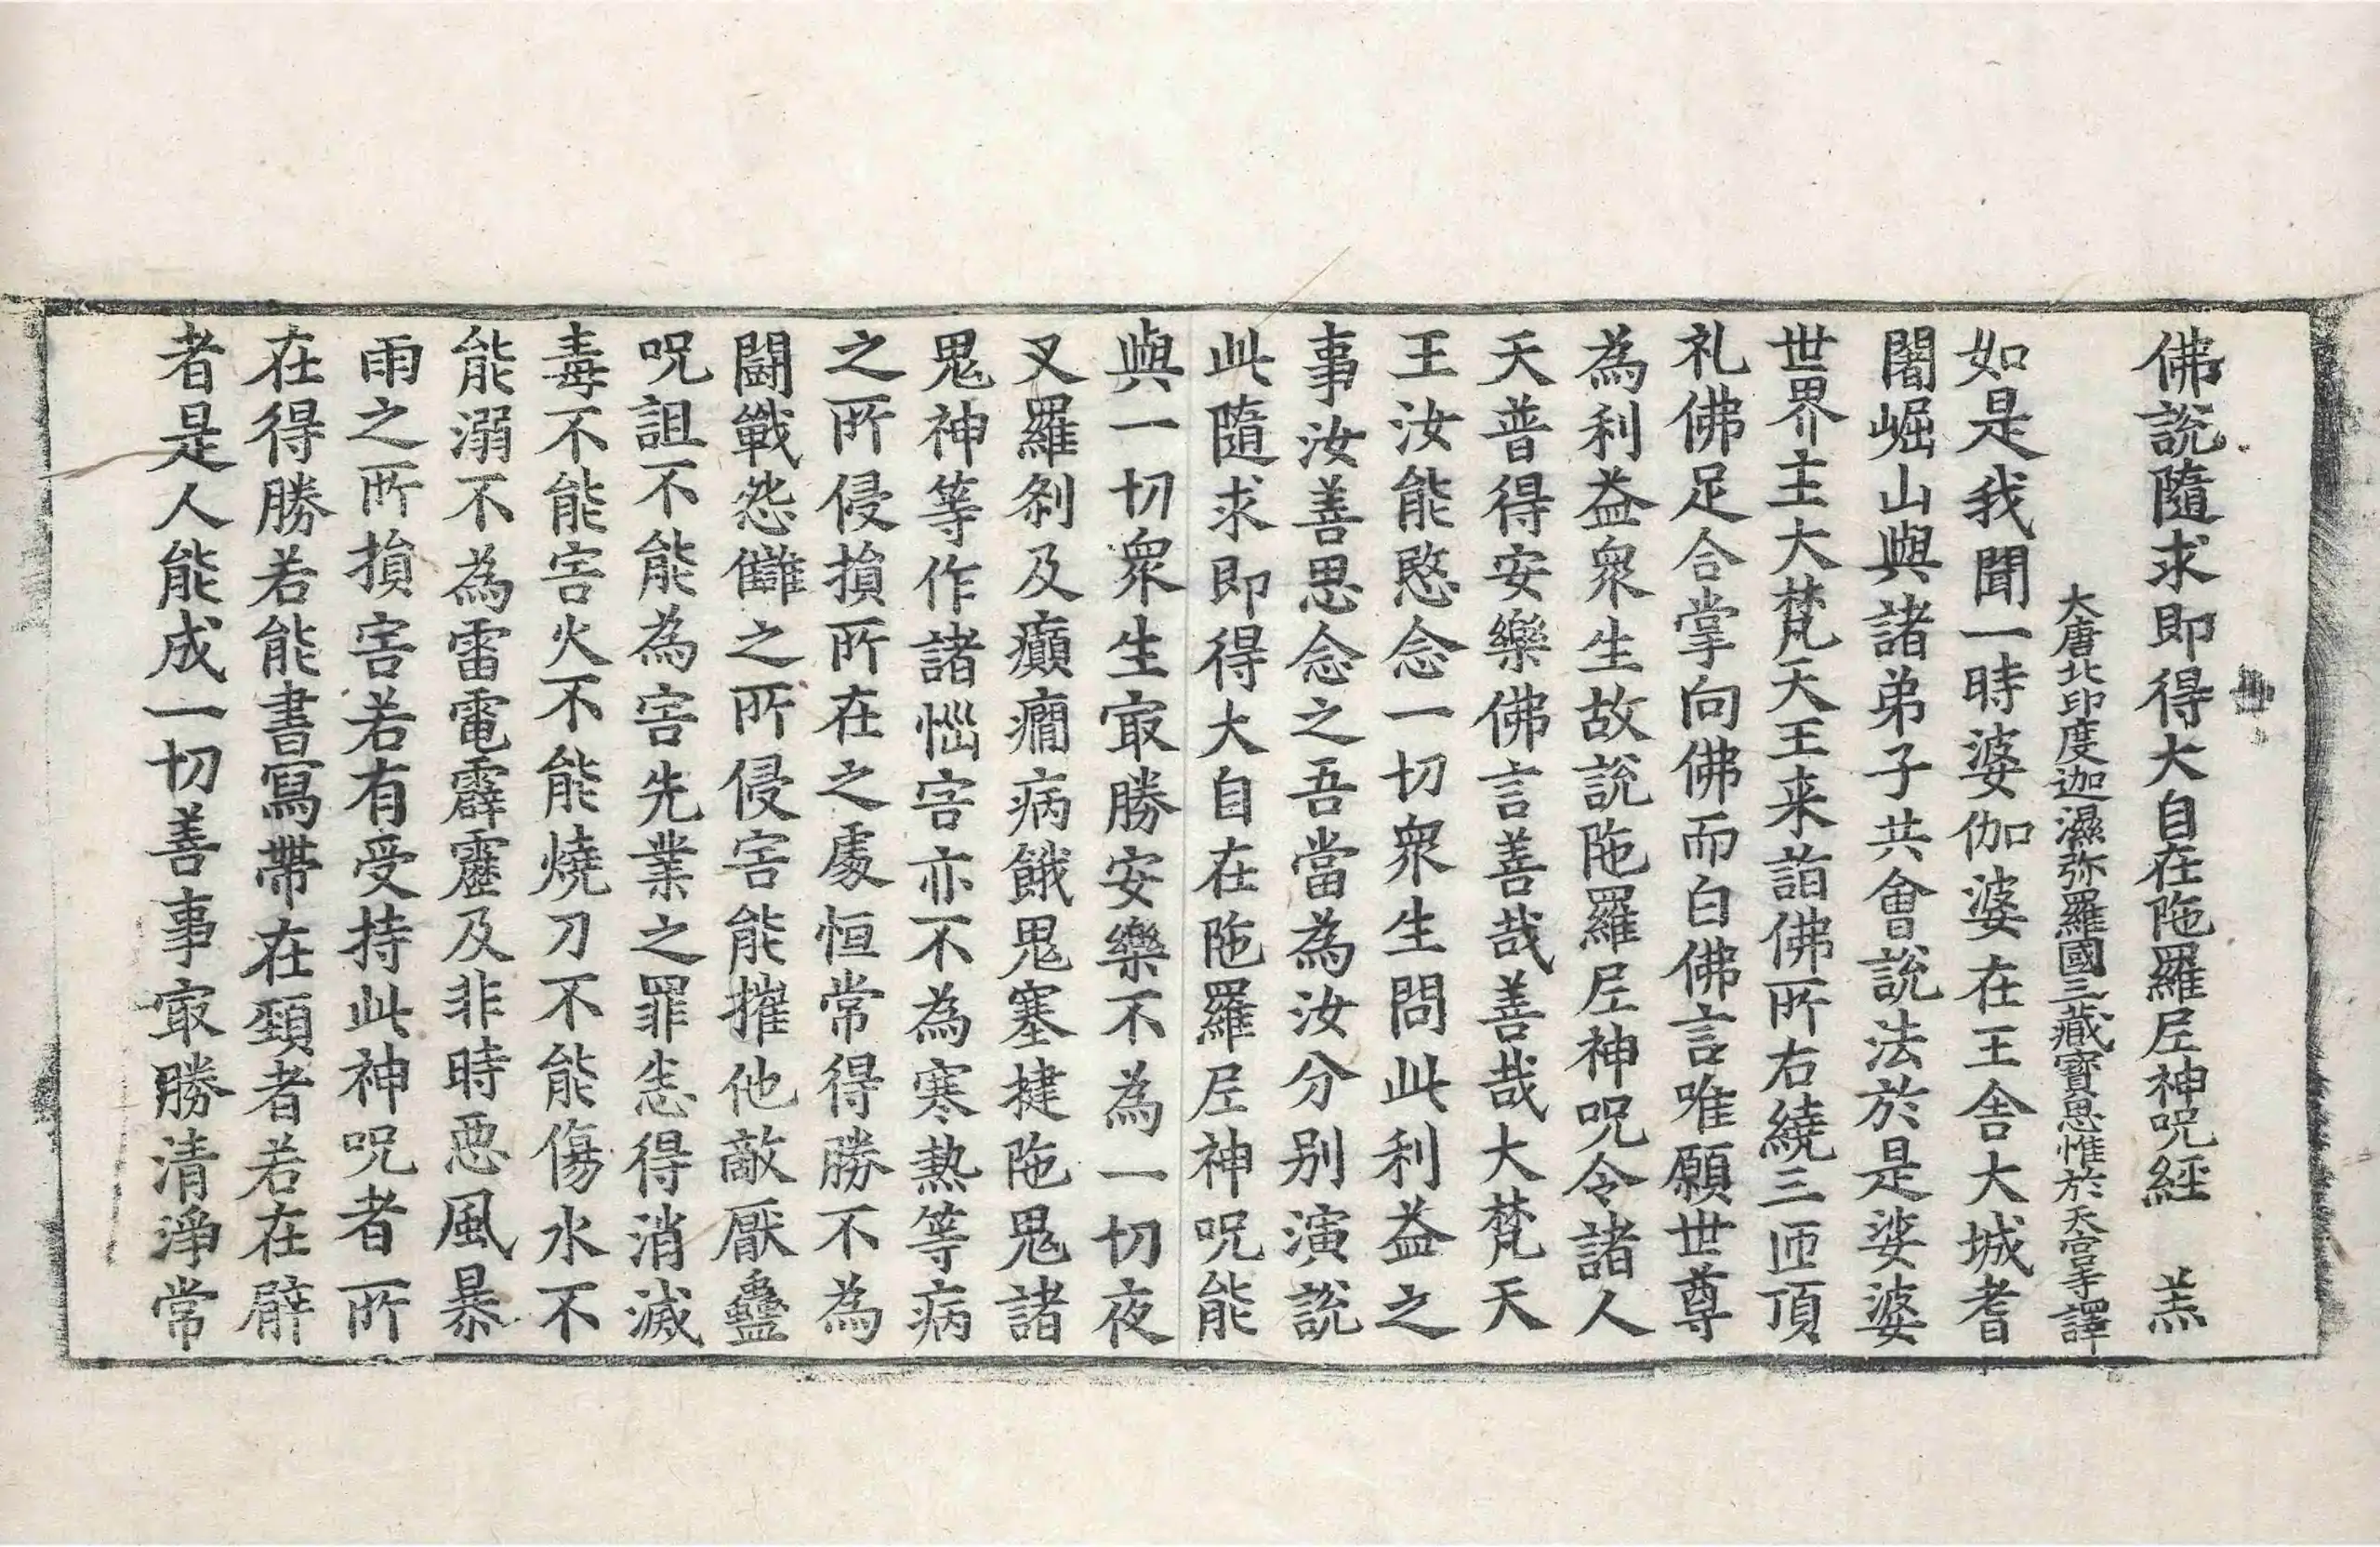 佛說隨求即得大自在陁羅尼神呪經　羔
大唐北印度迦濕弥羅國三藏寶思惟於天宮寺譯
如是我聞一時婆伽婆在王舍大城耆
闍崛山與諸弟子共會說法於是娑婆
世界主大梵天王来詣佛所右繞三匝頂
礼佛足合掌向佛而白佛言唯願世尊
為利益衆生故說陁羅尼神呪令諸人
天普得安樂佛言善哉善哉大梵天
王汝能愍念一切衆生問此利益之
事汝善思念之吾當為汝分别演說
此隨求即得大自在陁羅尼神呪能
與一切衆生㝡勝安樂不為一切夜
叉羅刹及癲癎病餓鬼塞揵陁鬼諸
鬼神等作諸惱害亦不為寒熱等病
之所侵損所在之處恒常得勝不為
鬪戰怨讎之所侵害能摧他敵厭蠱
呪詛不能為害先業之罪悉得消滅
毒不能害火不能燒刀不能傷水不
能溺不為雷電霹靂及非時惡風暴
雨之所損害若有受持此神呪者所
在得勝若能書寫帶在頸者若在臂
者是人能成一切善事㝡勝清淨常